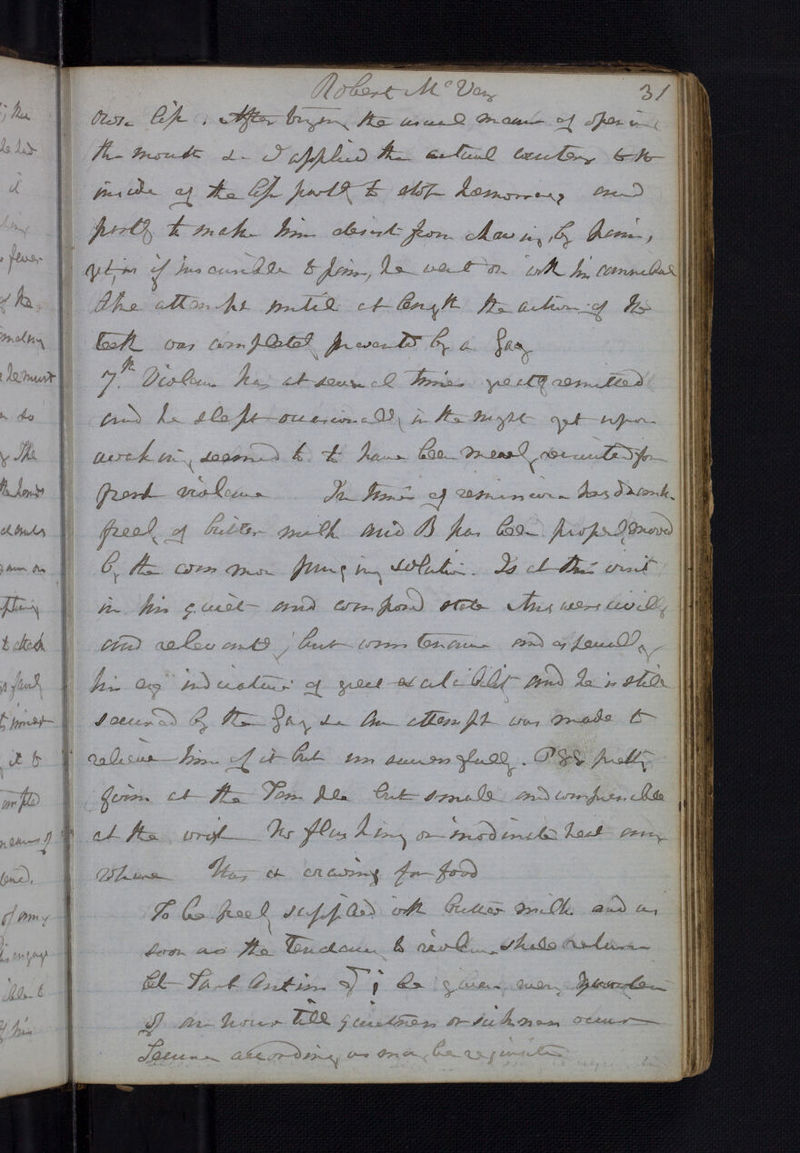 Robert McVey 31
own lip. After trying the usual means of opening
the mouth &c I applied the actual cautery to the
inside of the lip partly to stop hemorrhage and
partly to make him desist from chewing, by pain,
yet, as if insensible to pain, he went on with his cannibal
like attempt until at length the action of the
teeth was completely prevented by a gag
7th. Violence has at several times greatly remitted
and he slept occasionally in the night yet upon
awaking, seemed to have been merely recruited for
fresh violence In times of remission has drank
freely of butter milk and B has been properly moved
by the common purging solution. Is at this visit
in his quiet and composed state Answers civilly
and relevantly; but countenance and especially
his eye indicative of great excitability and he is still
secured by the gag &c An attempt was made to
relieve him of it but unsuccessfully. Pulse pretty
firm at the Temple but small and compressible
at the wrist No flushing or inordinate heat any
where Has a craving for food
To be freely supplied with butter milk and as
soon as the tendency to violence shall return
let Tart Antim j be given every quarter
of an hour till quietness or sickness occur
Secure according as may be requisite